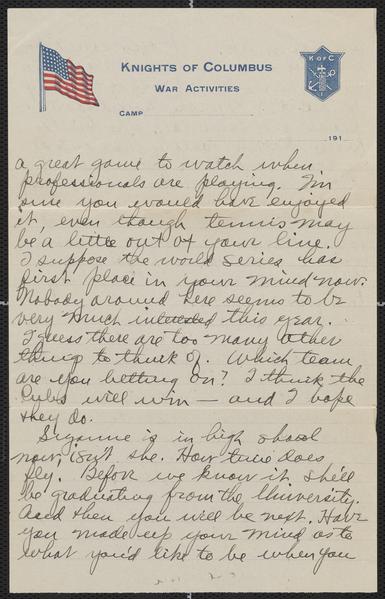 KNIGHTS OF COLUMBUS
WAR ACTIVITIES
CAMP
K of C
191
a great game to watch when
professionals are playing. I'm
sure you would have enjoyed
it, even though tennis may
be a little out of your line.
I suppose the world series has
first place in your mind now.
Nobody around here seems to be
very much interested this year.
I guess there are too many other
things to think of. Which team
are you betting on? I think the
Cubs will win — and I hope
they do.
Suzanne is in high school
now, isn't she. How time does
fly. Before we know it she'll
be graduating from the University.
And then you will be next. Have
you made up your mind as to
what you'd like to be when you